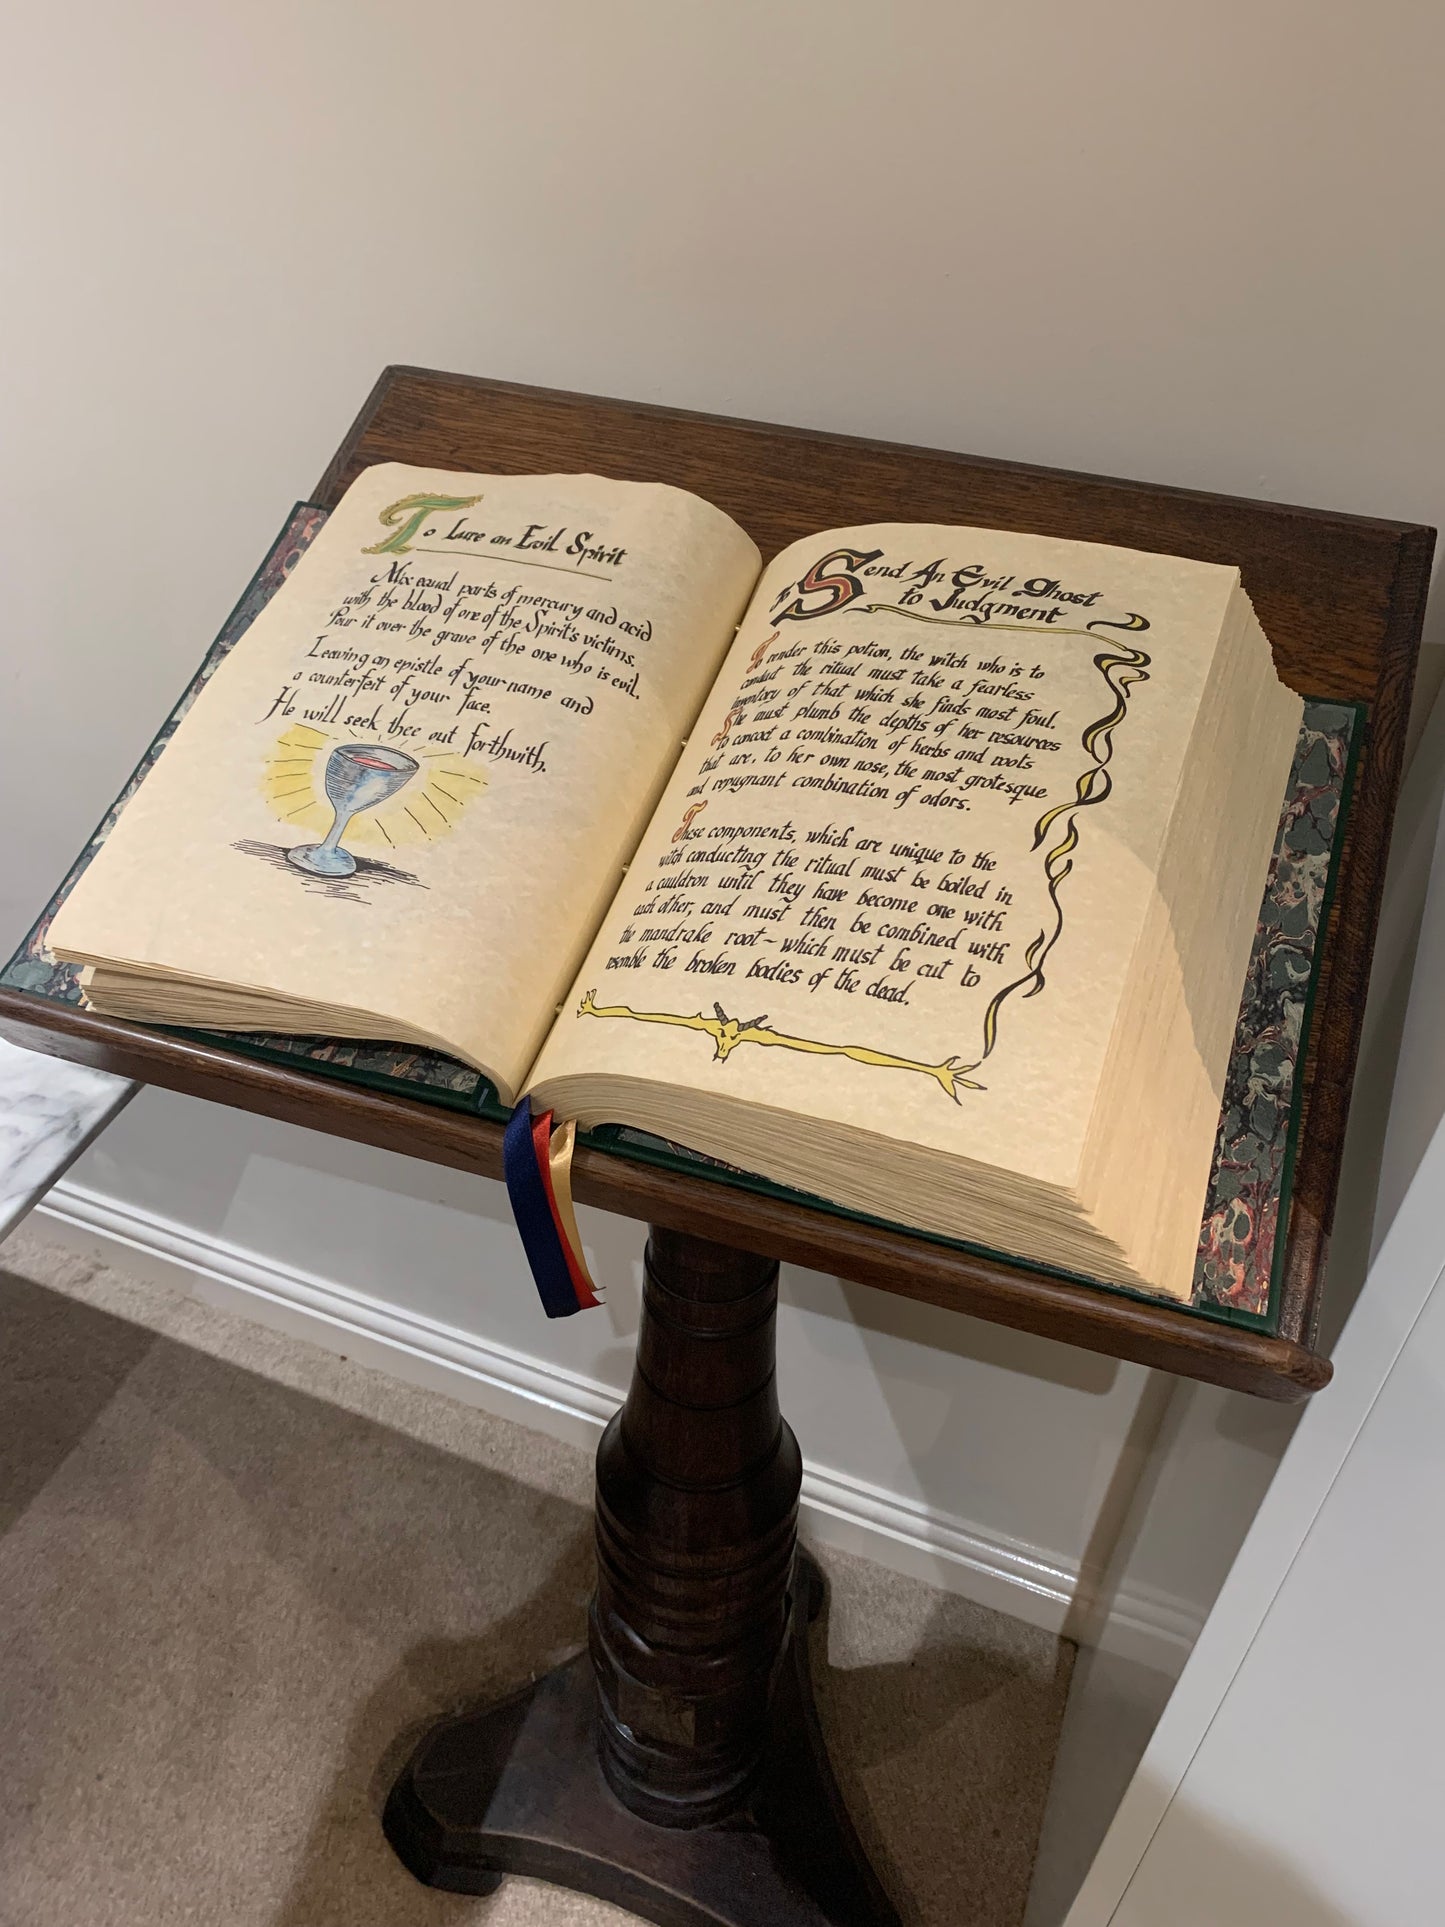 To Lure an Evil Spirit
Mix equal parts of mercury and acid
with the blood of one of the Spirit's victims.
Pour it over the grave of the one who is evil.
Leaving an epistle of your name and
a counterfeit of your face.
He will seek thee out forthwith.
To Send An Evil Ghost
to Judgment
To render this potion, the witch who is to
conduct the ritual must take a fearless
inventory of that which she finds most foul.
She must plumb the depths of her resources
to concoct a combination of herbs and roots
that are, to her own nose, the most grotesque
and repugnant combination of odors.
These components, which are unique to the
witch conducting the ritual must be boiled in
a cauldron until they have become one with
each other, and must then be combined with
the mandrake root~which must be cut to
resemble the broken bodies of the dead.